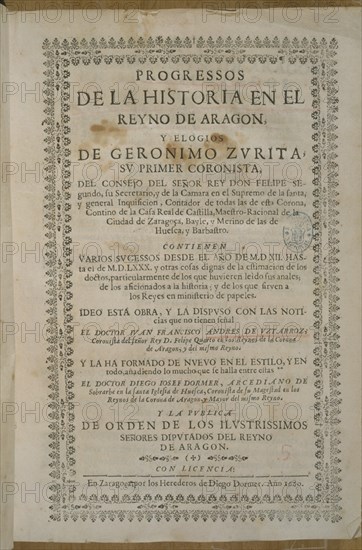 PROGRESSOS
DE LA HISTORIA EN EL
REYNO DE ARAGON,
Y ELOGIOS
DE GERONIMO ZVRITA,
SV PRIMER CORONISTA,
DEL CONSEJO DEL SEÑOR REY DON FELIPE Se-
gundo, su Secretario, y de la Camara en el Supremo de la santa,
y general Inquisicion, Contador de todas las de esta Corona,
Contino de la Casa Real de Castilla, Maestro-Racional de la
Ciudad de Zaragoça, Bayle, y Merino de las de
Huesca, y Barbastro.
CONTIENEN
VARIOS SVCESSOS DESDE EL AÑO DE M.D.XII. HAS-
ta el de M.D.LXXX. y otras cosas dignas de la estimacion de los
doctos, particularmente de los que huvieren leido sus anales,
de los aficionados a la historia; y de los que sirven a
los Reyes en ministerio de papeles.
IDEO ESTA OBRA, Y LA DISPVSO CON LAS NOTI-
cias que no tienen señal
EL DOCTOR IVAN FRANCISCO ANDRES DE VZTARROZ,
Coronista del Señor Rey D. Felipe Quarto en los Reynos de la Corona
de Aragon, y del mismo Reyno.
Y LA HA FORMADO DE NVEVO EN EL ESTILO, Y EN
todo, añadiendo lo mucho que se halla entre estas
EL DOCTOR DIEGO IOSEF DORMER, ARCEDIANO DE
Sobrarbe en la santa Iglesia de Huesca, Coronista de su Magestad en los
Reynos de la Corona de Aragon, y Mayor del mismo Reyno.
Y LA PVBLICA
DE ORDEN DE LOS ILVSTRISSIMOS
SEÑORES DIPVTADOS DEL REYNO
DE ARAGON.
CON LICENCIA:
En Zaragoça por los Herederos de Diego Dormer. Año 1680.